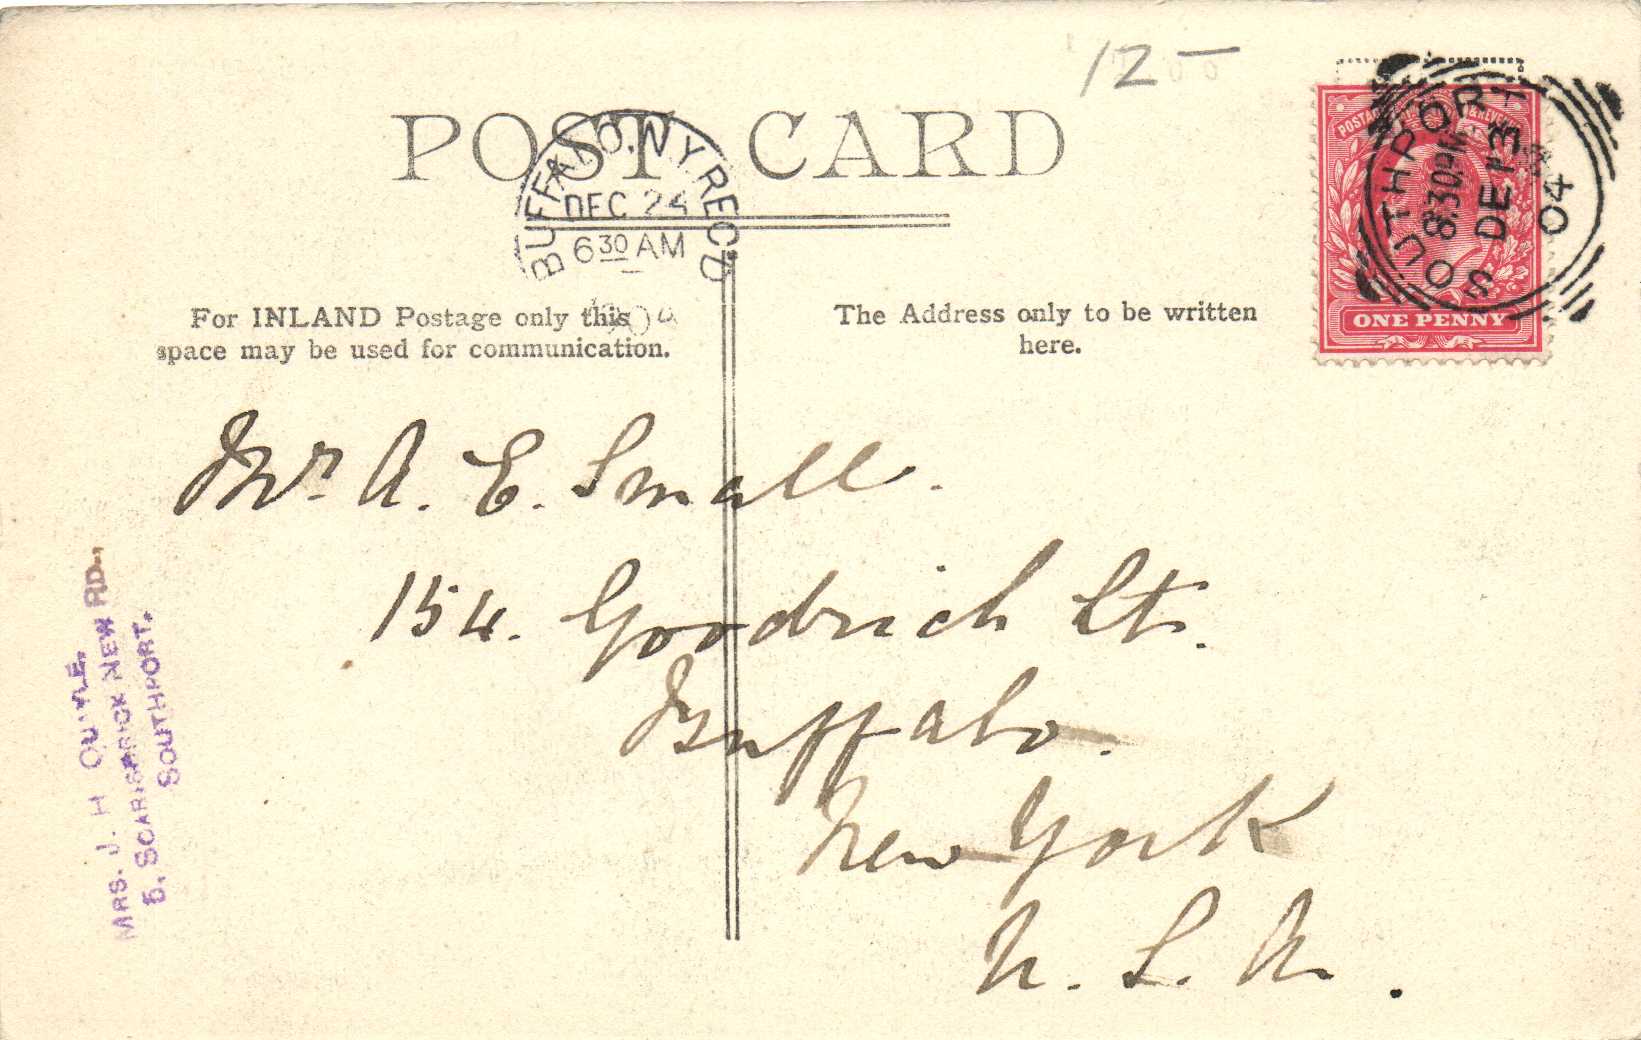 12 —
POST CARD
BUFFALO, N.Y. REC'D
DEC 24
6 30 AM
1904
For INLAND Postage only this
space may be used for communication.
The Address only to be written
here.
POSTAGE & REVENUE
ONE PENNY
SOUTHPORT
8.30PM
DE 13
04
Mr. A. E. Small.
154. Goodrich St.
Buffalo.
New York
U. S. A.
MRS. J. H QUAYLE,
5, SCARISBRICK NEW RD.,
SOUTHPORT.